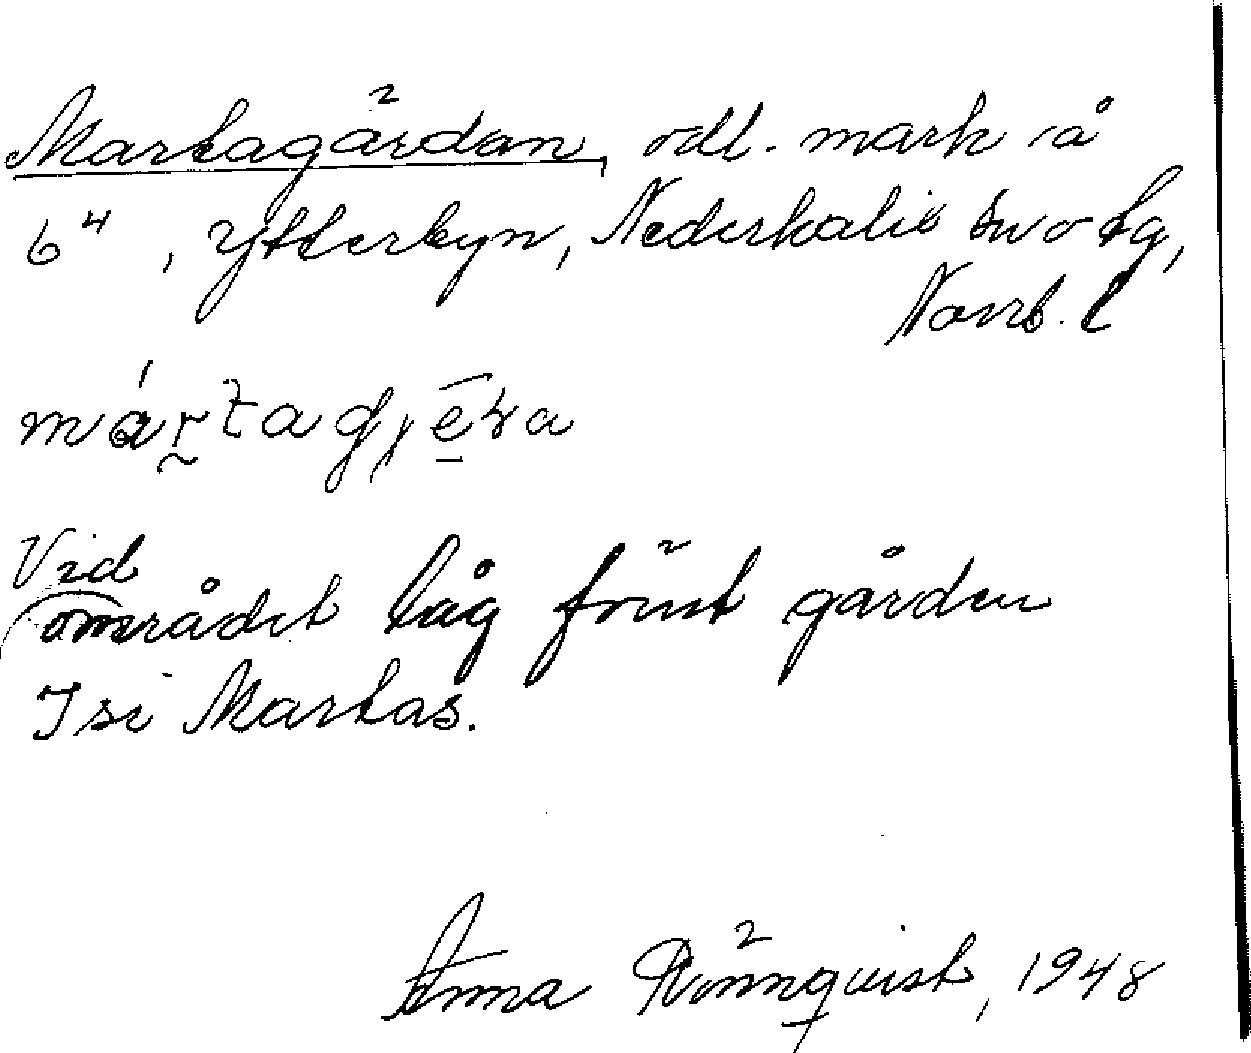 Martagärdan, odl. mark å
6⁴, Ytterbyn, Nederkalix sn o tg,
Norrb. l
Vid
området låg förut gården
Isi Martas.
Anna Rönnquist, 1948